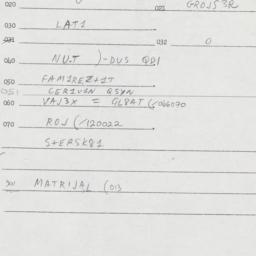 020 021 GROJS3R
030 LAT1
031 032 0
040 NUT )-DUS QD1
050 FAM1REZ+1T
051 CER1U1N QSYN
060 VAJ3X = GLPAT (/066070
070 ROJ (/120022
S+ERSK81
301 MATRIJAL (013